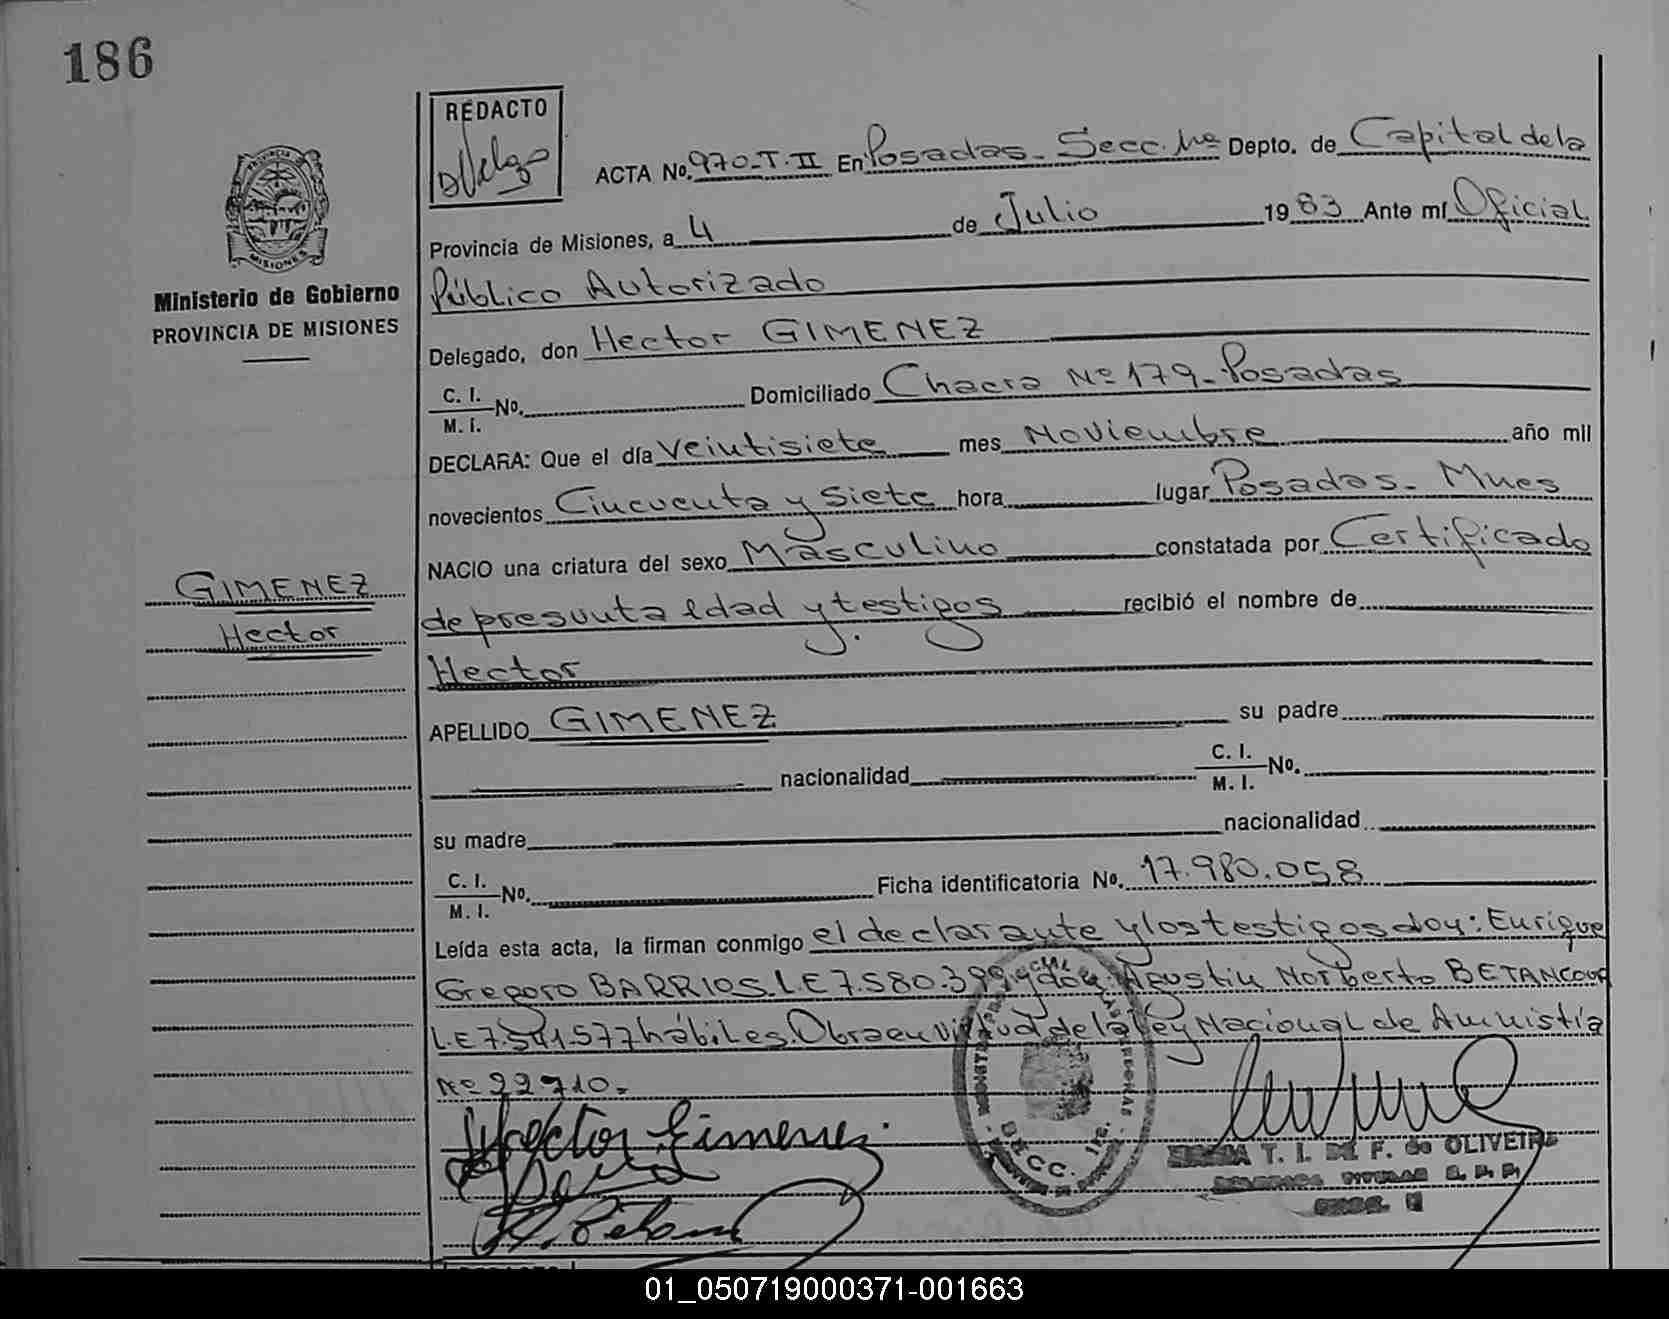 186
REDACTO
ACTA No. 970-T.II En Posadas - Secc. 1ra Depto. de Capital de la
Provincia de Misiones, a 4 de Julio 1983 Ante mí Oficial
Público Autorizado
MISIONES
Ministerio de Gobierno
PROVINCIA DE MISIONES
Delegado, don Hector GIMENEZ
C. I.
M. I. No. Domiciliado Chacra Nº 179 - Posadas
DECLARA: Que el día Veintisiete mes Noviembre año mil
novecientos Cincuenta y Siete hora lugar Posadas - Mnes
NACIO una criatura del sexo Masculino constatada por Certificado
de presunta edad y testigos recibió el nombre de
Hector
GIMENEZ
Hector
APELLIDO GIMENEZ su padre
nacionalidad C. I.
M. I. No.
su madre nacionalidad
C. I.
M. I. No. Ficha identificatoria No. 17.980.058
Leída esta acta, la firman conmigo el declarante y los testigos doy: Enrique
Gregoro BARRIOS. L.E 7.580.399, y don: Agustin Norberto BETANCOUR
L.E 7.541.577 hábiles. Obra en virtud de la ley Nacional de Amnistía
Nº 22710.
Hector Gimenez.
T. I. DE F. de OLIVEIRA
SECC. 1ra.
01_050719000371-001663